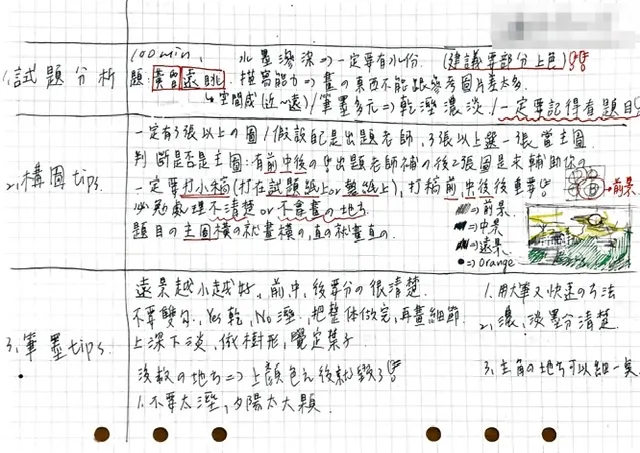 100min, 水墨渲染⇒一定要有水份. (建議要部分上色)
1.試題分析
題:黃昏遠眺. 描寫能力⇒畫の東西不能跟參考圖片差太多.
空間感(近~遠)/筆墨多元⇒乾溼濃淡./一定要記得有題目
2.構圖tips.
一定有3張以上の圖/假設自己是出題老師,3張以上選一張當主圖
判斷是否是主圖:有前中後の 出題老師補の後2張圖是來輔助你
一定要打小稿(打在試題紙上or墊紙上),打稿前中後後要乖 ⇒前景
處理不清楚or不會畫の地方
題目の主圖橫の就畫橫の,直の就畫直の.
⇒前景
⇒中景
⇒遠景
⇒Orange
3.筆墨tips.
遠景越小越好,前,中,後要分の很清楚.
不要雙勾,Yes乾,No溼.把整体做完,再畫細節.
上深下淡,依樹形,決定葉子
沒救の地方⇒上顏色之後就毀了
1.不要太溼,夕陽太大顆.
1.用大筆又快速の方法
2.濃、淡墨分清楚.
3.主角の地方可以細一點